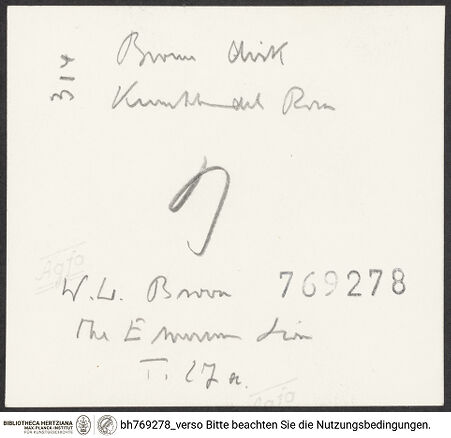 314
Bronze
Kunsthandel Rom
Agfa
W. L. Brown
769278
The Etruscan Lion
T. 27 a.
Agfa
BIBLIOTHECA HERTZIANA
MAX-PLANCK-INSTITUT
FÜR KUNSTGESCHICHTE
bh769278_verso Bitte beachten Sie die Nutzungsbedingungen.